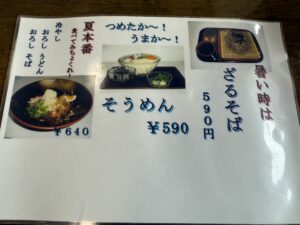 暑い時は
ざるそば
590円
つめたか～！
うまか～！
そうめん
￥590
夏本番
食べてみちょくれ！
冷やし
おろしうどん
おろしそば
￥640